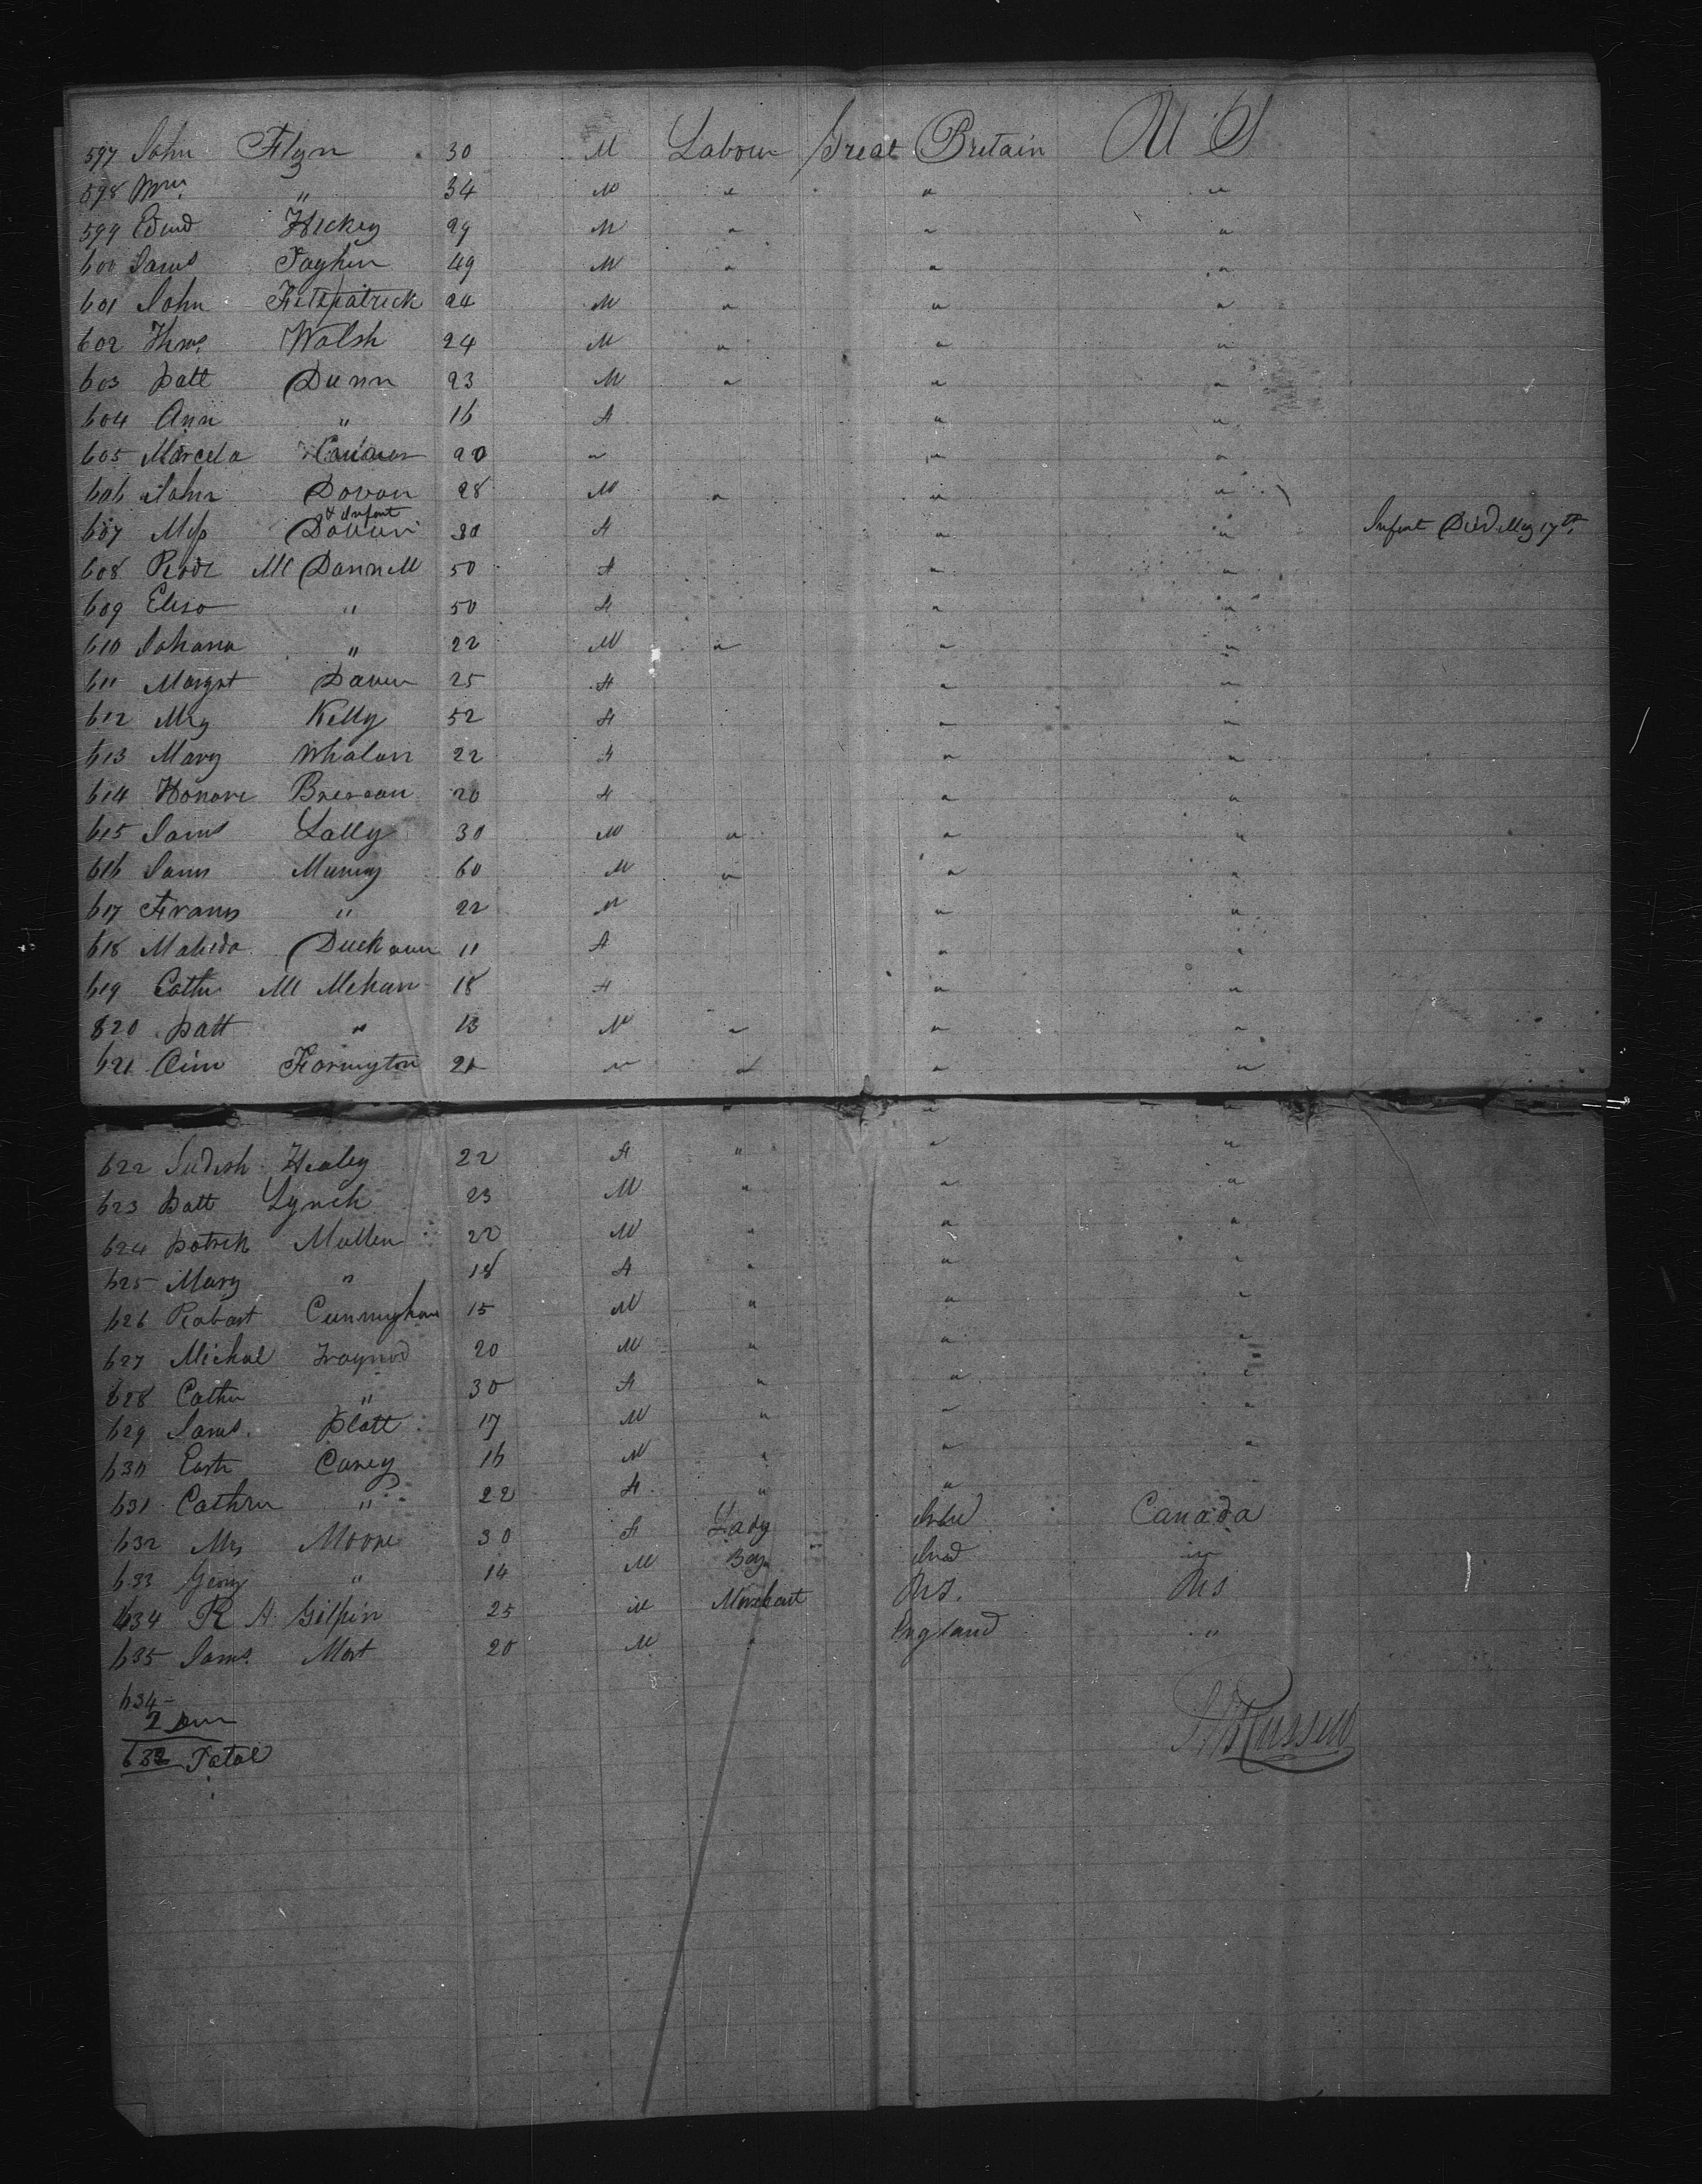 597 John Flyn 30 M Labour Great Britain U S
598 Wm " 34 M " " "
599 Edwd Hickey 29 M " " "
600 Jams Fayhen 49 M " " "
601 John Fitzpatrick 24 M " " "
602 Thms Walsh 24 M " " "
603 Patt Dunn 23 M " " "
604 Ann " 16 F " "
605 Marcela 20 " " "
606 John Dovan 28 M " " "
607 Mrs Dovan & Infant 30 F " " Infant Died May 17th
608 Mc Donnell 50 F " "
609 Elisa " 50 F " "
610 Johana " 22 M " " "
611 Margrt Daven 25 F " "
612 Mrg Kelly 52 F " "
613 Mary Whalan 22 F " "
614 Honora 20 F " "
615 Jams Lally 30 M " " "
616 Jams Murray 60 M " " "
617 Frances " 22 M " "
618 11 F " "
619 Cathn Mc Mehan 18 F " "
820 Patt " 13 M " " "
621 Farington 21 " " " "
622 Judish Healey 22 F " " "
623 Patt Lynch 23 M " " "
624 Patrick Mullen 22 M " " "
625 Mary " 18 F " " "
626 Robart Cunningham 15 M " " "
627 Michal Traynod 20 M " " "
628 Cathn " 30 F " " "
629 Jams Platt 17 M " " "
630 Carey 16 M " " "
631 Cathrn " 22 F " "
632 Mrs Moore 30 F Lady Canada
633 Georg " 14 M Boy "
634 R A Gilpin 25 M Merchant U S. U S
635 Jams Mort 20 M " England "
634
2
632 Total
Russell